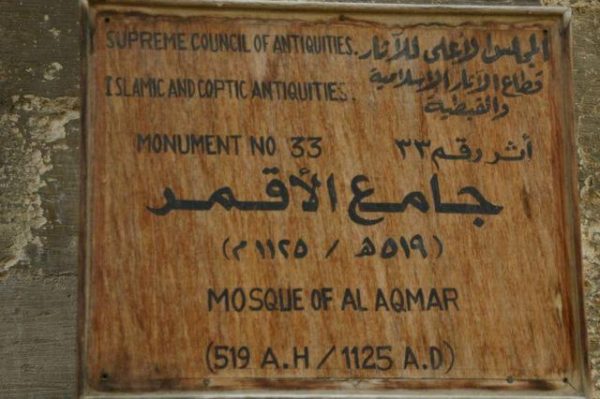 SUPREME COUNCIL OF ANTIQUITIES. المجلس الاعلى للآثار
قطاع الآثار الإسلامية
ISLAMIC AND COPTIC ANTIQUITIES. والقبطية
MONUMENT NO 33 أثر رقم ٣٣
جامع الأقمر
(٥١٩ھ / ١١٢٥ م)
MOSQUE OF AL AQMAR
(519 A.H / 1125 A.D)